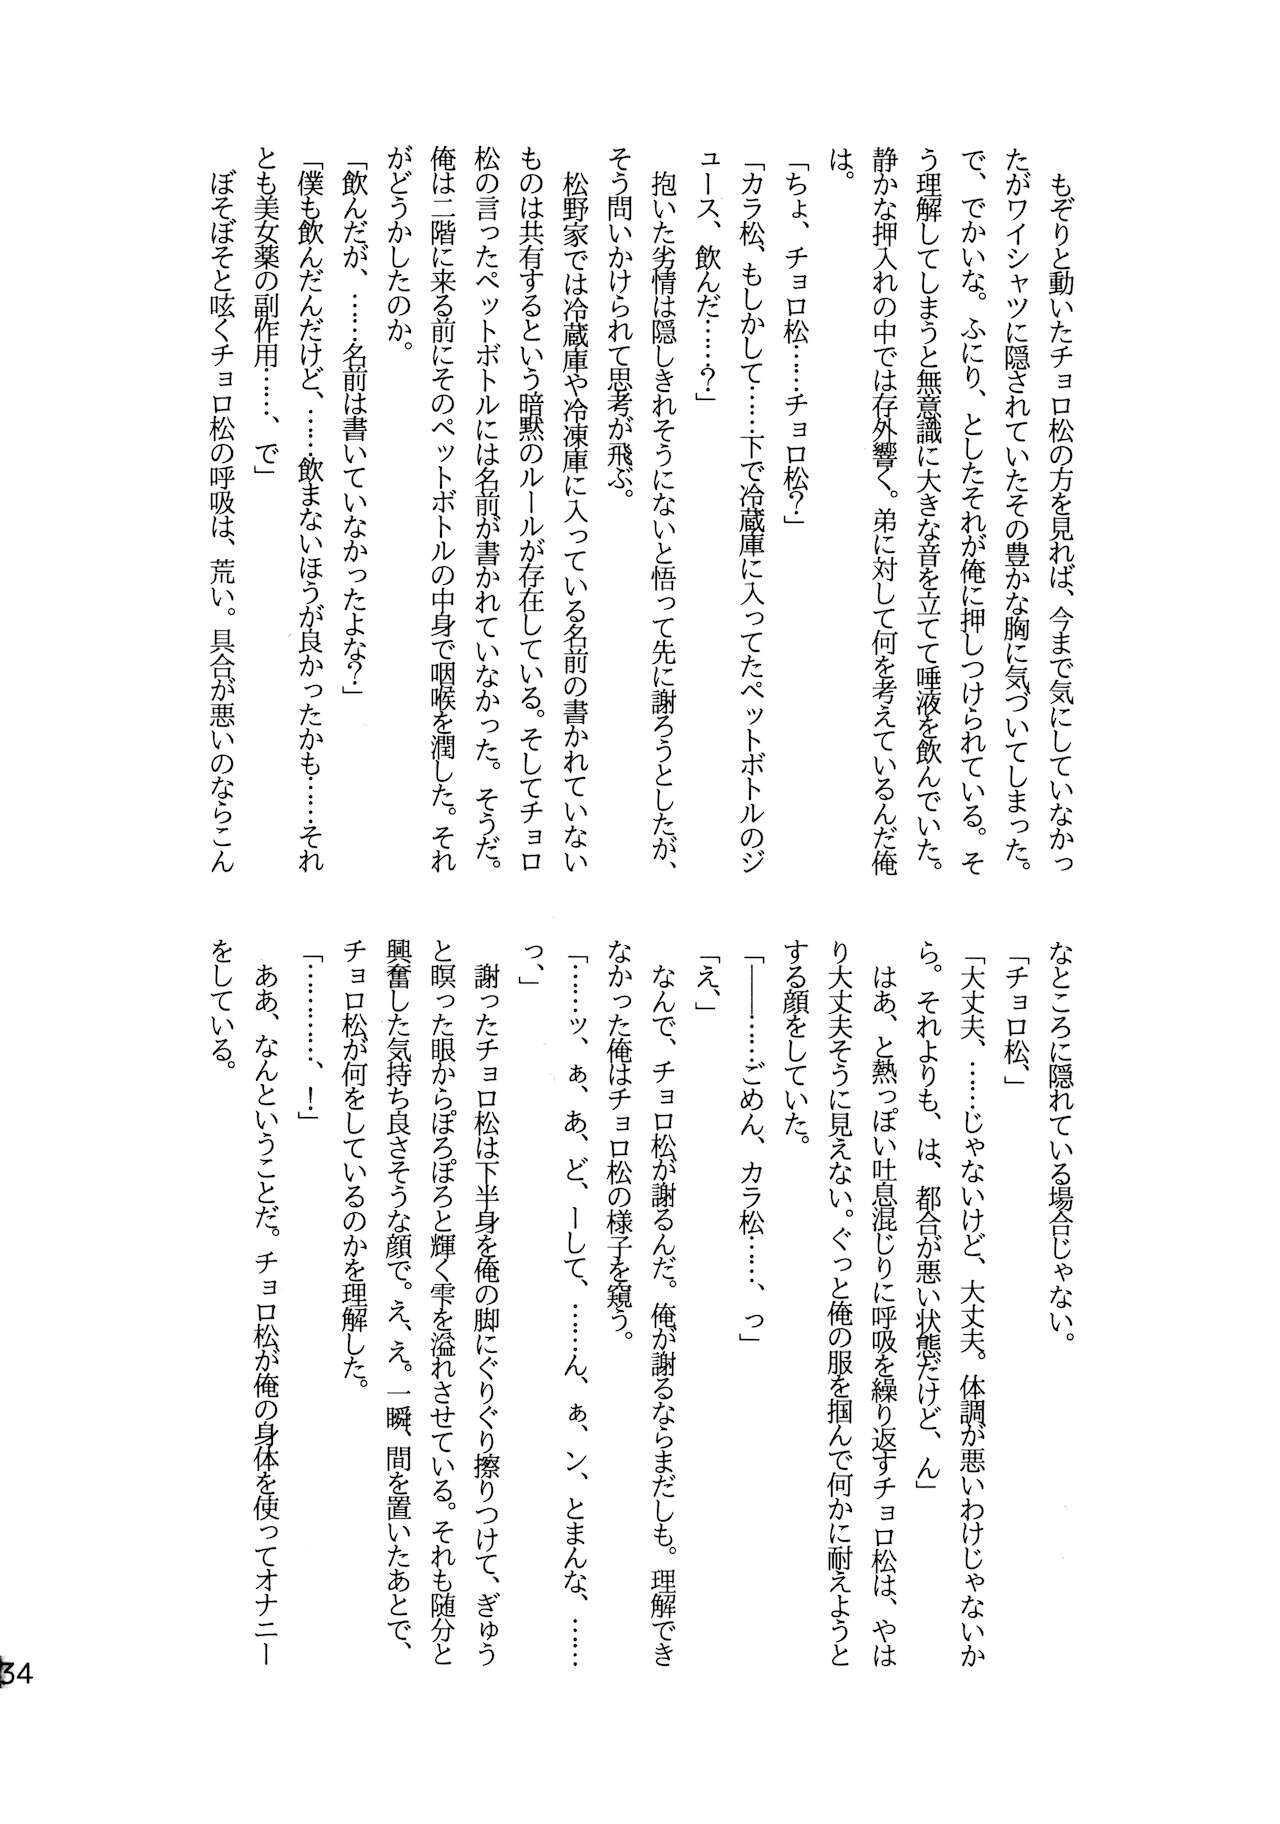 もぞりと動いたチョロ松の方を見れば、今まで気にしていなかっ
たがワイシャツに隠されていたその豊かな胸に気づいてしまった。
で、でかいな。ふにり、としたそれが俺に押しつけられている。そ
う理解してしまうと無意識に大きな音を立てて唾液を飲んでいた。
静かな押入れの中では存外響く。弟に対して何を考えているんだ俺
は。
「ちょ、チョロ松……チョロ松？」
「カラ松、もしかして……下で冷蔵庫に入ってたペットボトルのジ
ュース、飲んだ……？」
抱いた劣情は隠しきれそうにないと悟って先に謝ろうとしたが、
そう問いかけられて思考が飛ぶ。
松野家では冷蔵庫や冷凍庫に入っている名前の書かれていない
ものは共有するという暗黙のルールが存在している。そしてチョロ
松の言ったペットボトルには名前が書かれていなかった。そうだ。
俺は二階に来る前にそのペットボトルの中身で咽喉を潤した。それ
がどうかしたのか。
「飲んだが、……名前は書いていなかったよな？」
「僕も飲んだんだけど、……飲まないほうが良かったかも……それ
とも美女薬の副作用……、で」
ぼそぼそと呟くチョロ松の呼吸は、荒い。具合が悪いのならこん
なところに隠れている場合じゃない。
「チョロ松、」
「大丈夫、……じゃないけど、大丈夫。体調が悪いわけじゃないか
ら。それよりも、は、都合が悪い状態だけど、ん」
はあ、と熱っぽい吐息混じりに呼吸を繰り返すチョロ松は、やは
り大丈夫そうに見えない。ぐっと俺の服を掴んで何かに耐えようと
する顔をしていた。
「――……ごめん、カラ松……、っ」
「え、」
なんで、チョロ松が謝るんだ。俺が謝るならまだしも。理解でき
なかった俺はチョロ松の様子を窺う。
「……ッ、ぁ、あ、ど、ーして、……ん、ぁ、ン、とまんな、……
っ、」
謝ったチョロ松は下半身を俺の脚にぐりぐり擦りつけて、ぎゅう
と瞑った眼からぽろぽろと輝く雫を溢れさせている。それも随分と
興奮した気持ち良さそうな顔で。え、え。一瞬、間を置いたあとで、
チョロ松が何をしているのかを理解した。
「…………、！」
ああ、なんということだ。チョロ松が俺の身体を使ってオナニー
をしている。
34